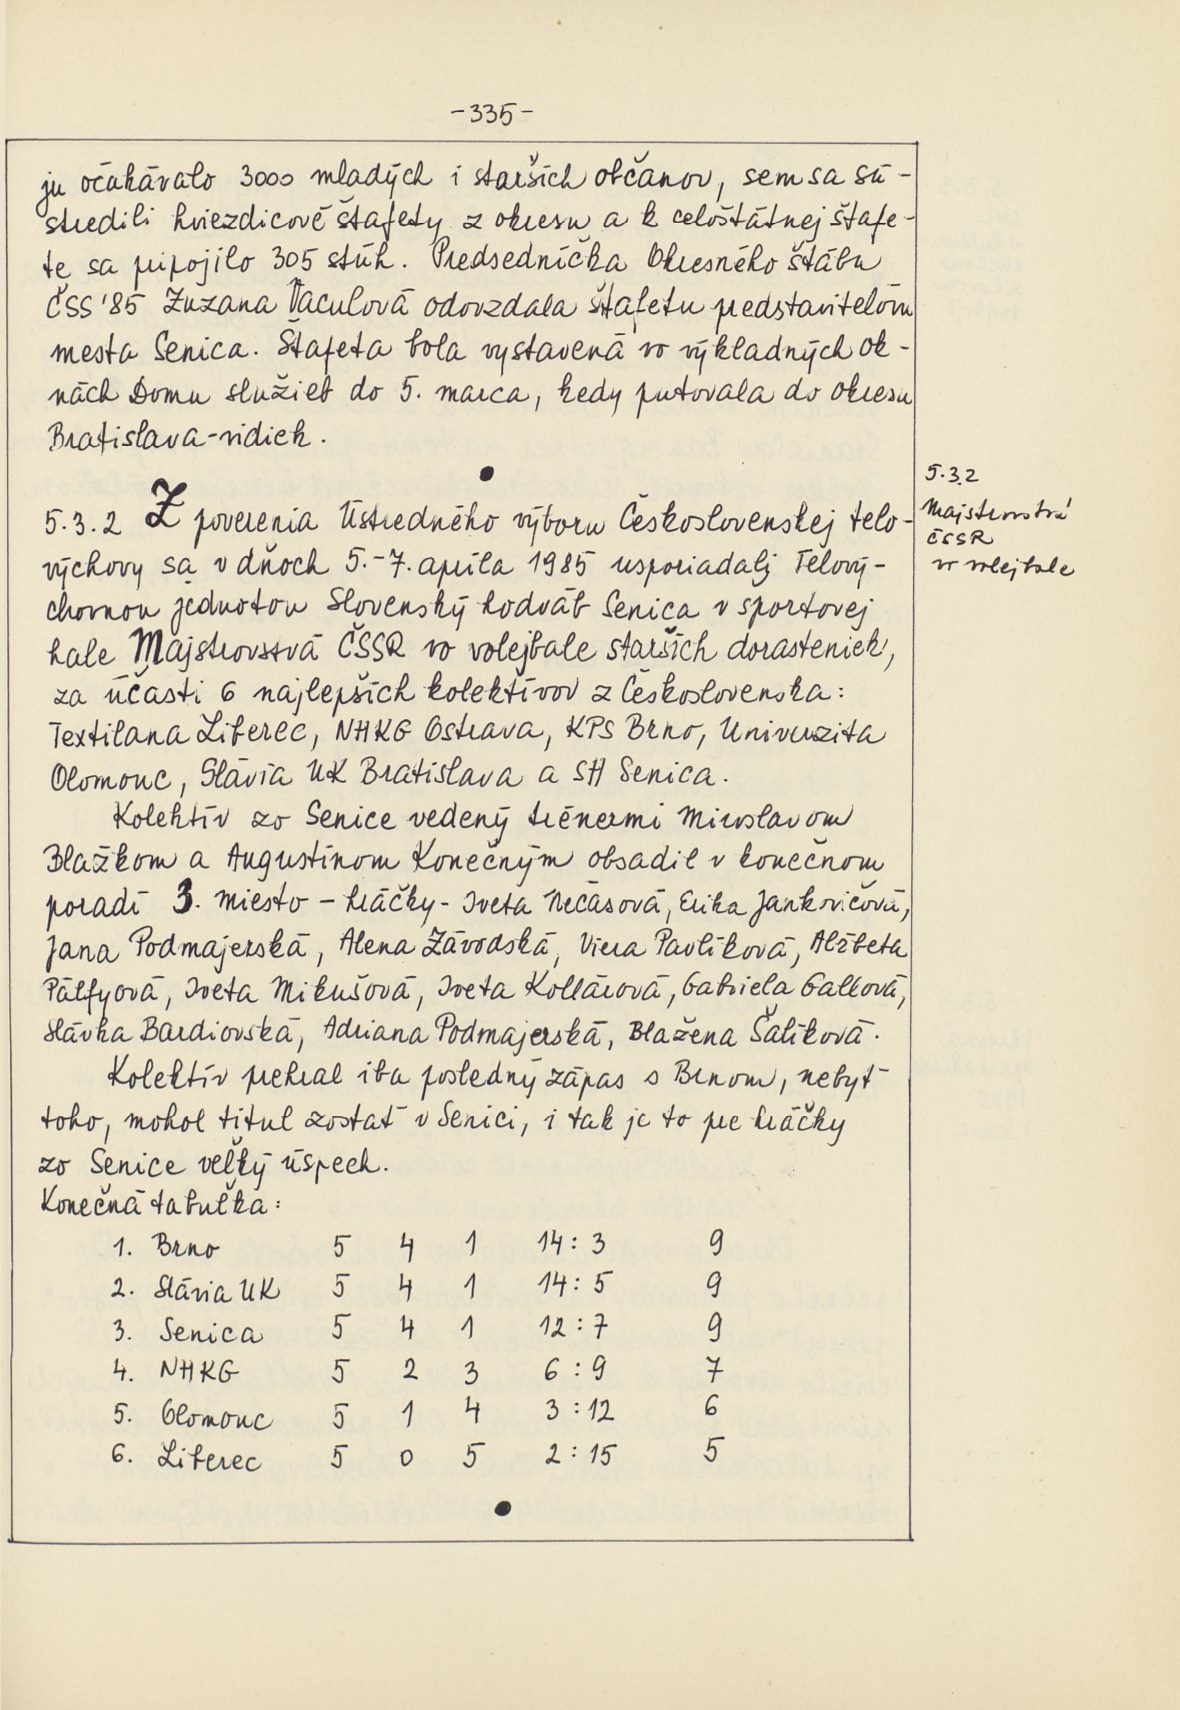 -335-
ju očakávalo 3000 mladých i starších občanov, sem sa sú-
stredili hviezdicové štafety z okresu a k celoštátnej štafe-
te sa pripojilo 305 stúh. Predsedníčka Okresného štábu
ČSS '85 Zuzana Vaculová odovzdala štafetu predstaviteľom
mesta Senica. Štafeta bola vystavená vo výkladných ok-
nách Domu služieb do 5. marca, kedy putovala do okresu
Bratislava-vidiek.
5.3.2 Z poverenia Ústredného výboru Československej telo-
výchovy sa v dňoch 5.-7. apríla 1985 usporiadalj Telový-
chovnou jednotou Slovenský hodváb Senica v športovej
hale Majstrovstvá ČSSR vo volejbale starších dorasteniek,
za účasti 6 najlepších kolektívov z Československa:
Textilana Liberec, NHKG Ostrava, KPS Brno, Univerzita
Olomouc, Slávia UK Bratislava a SH Senica.
Kolektív zo Senice vedený trénermi Miroslavom
Blažkom a Augustínom Konečným obsadil v konečnom
poradí 3. miesto - hráčky - Iveta Nečasová, Erika Jankovičová,
Jana Podmajerská, Alena Závodská, Viera Pavlíková, Alžbeta
Pálfyová, Iveta Mikušová, Iveta Kollárová, Gabriela Galková,
Slávka Bardiovská, Adriana Podmajerská, Blažena Šalíková.
Kolektív prehral iba posledný zápas s Brnom, nebyť
toho, mohol titul zostať v Senici, i tak je to pre hráčky
zo Senice veľký úspech.
Konečná tabuľka:
1. Brno 5 4 1 14:3 9
2. Slávia UK 5 4 1 14:5 9
3. Senica 5 4 1 12:7 9
4. NHKG 5 2 3 6:9 7
5. Olomouc 5 1 4 3:12 6
6. Liberec 5 0 5 2:15 5
5.3.2
Majstrovstvá
ČSSR
vo volejbale